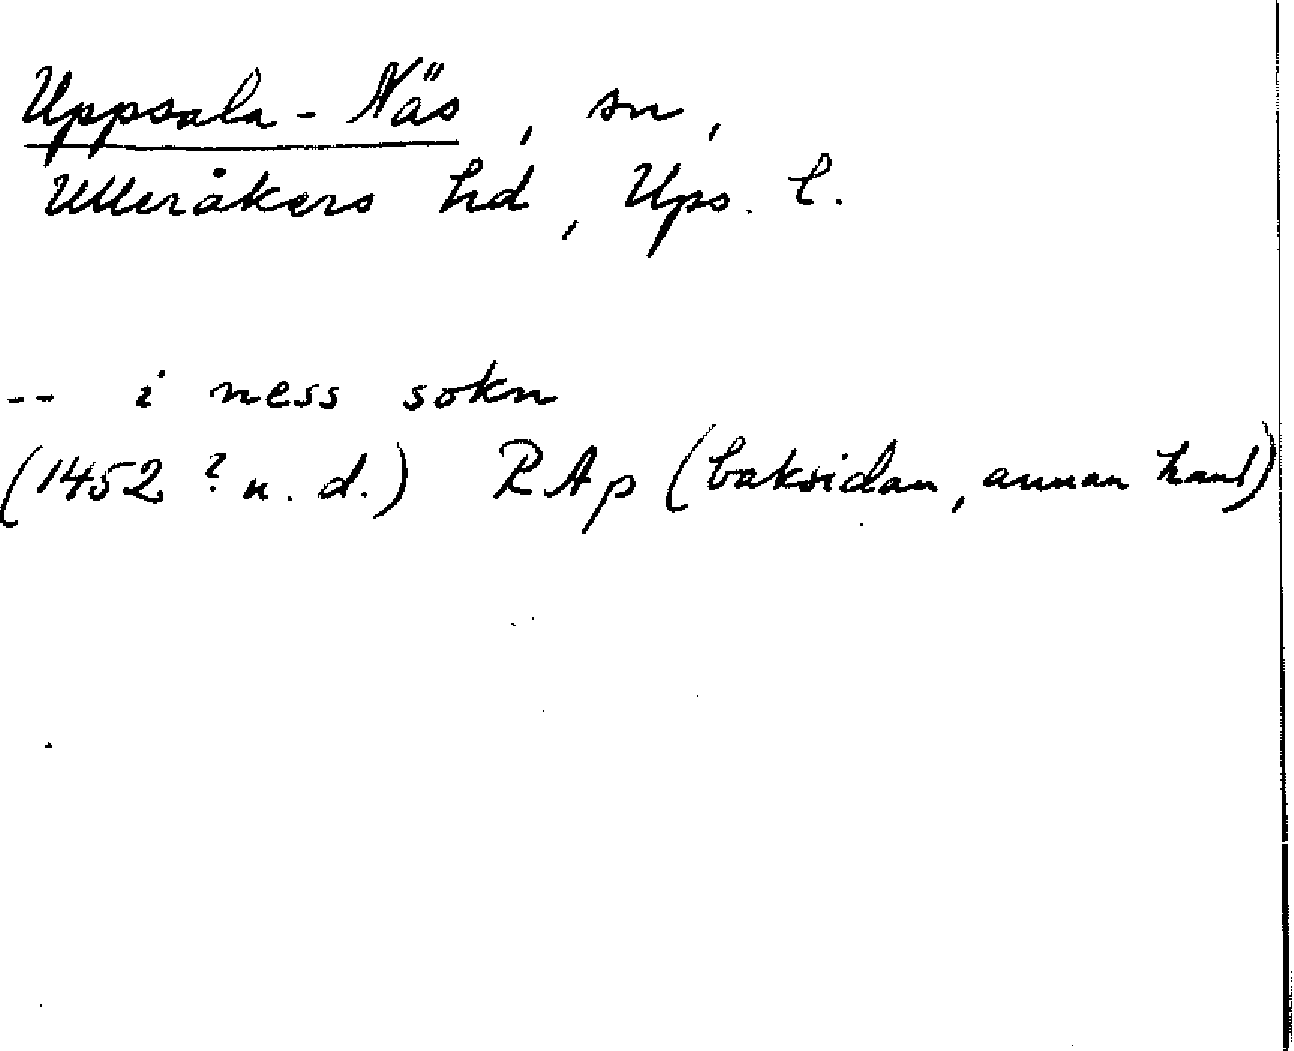 Uppsala-Näs, sn,
Ulleråkers hd, Ups. l.
-- i ness sokn
(1452? u. d.) RAp (baksidan, annan hand)